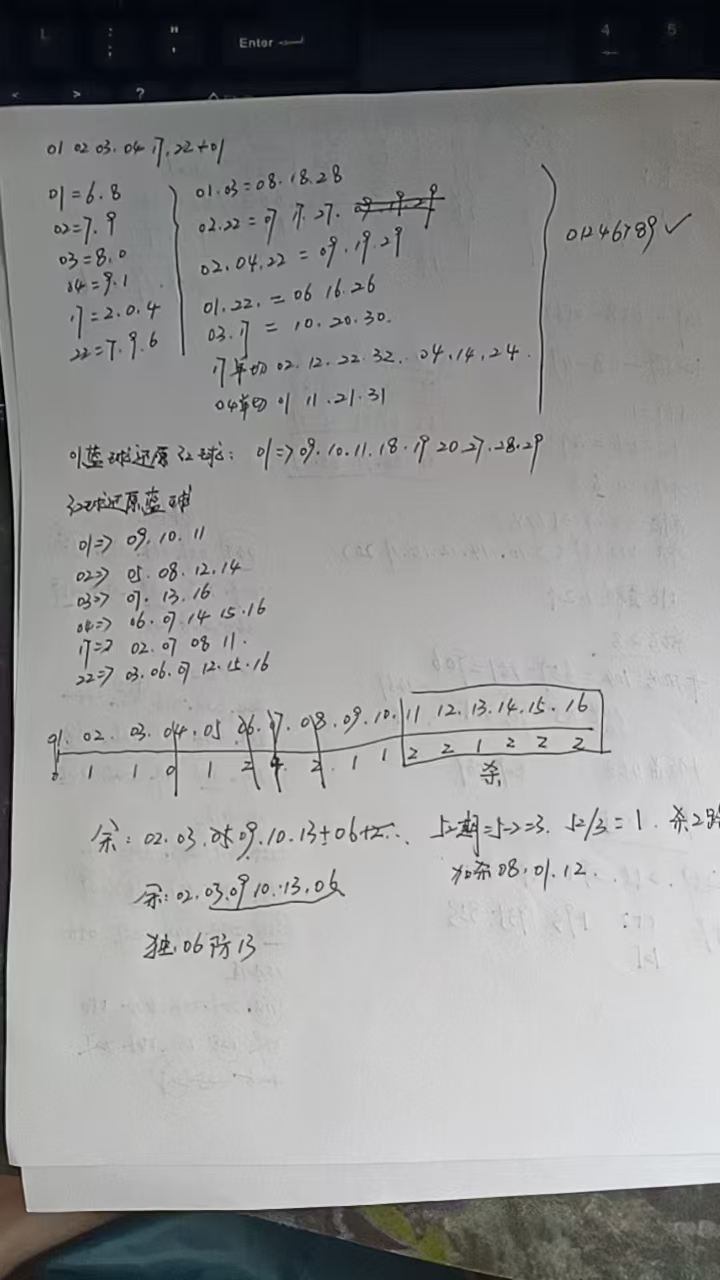 Enter
4
5
01 02 03. 04 17. 22 + 01
01 = 6. 8
02 = 7. 9
03 = 8. 0
04 = 9. 1
17 = 2. 0. 4
22 = 7. 9. 6
01. 03 = 08. 18. 28
02. 22 = 07 17. 27. 09. 19. 29
02. 04. 22 = 09. 19. 29
01. 22. = 06 16. 26
03. 17 = 10. 20. 30.
17 02. 12. 22. 32. 04. 14. 24.
04 01 11. 21. 31
01246789 ✓
01蓝球还原红球: 01=>09. 10. 11. 18. 19 20. 27. 28. 29
红球还原蓝球
01=> 09. 10. 11
02=> 05. 08. 12. 14
03=> 07. 13. 16
04=> 06. 07. 14 15. 16
17=> 02. 07 08 11.
22=> 03. 06. 07 12. 15. 16
01. 02. 03. 04. 05 06. 07. 08. 09. 10. 11 12. 13. 14. 15. 16
0 1 1 0 1 2 4 2. 1 1 2 2 1 2 2 2
杀
余: 02. 03. 05 09. 10. 13 + 06
52期=5-2=3. 52/3=1. 杀2路
加杀 08. 01. 12.
余: 02. 03. 09 10. 13. 06
独. 06 防 13